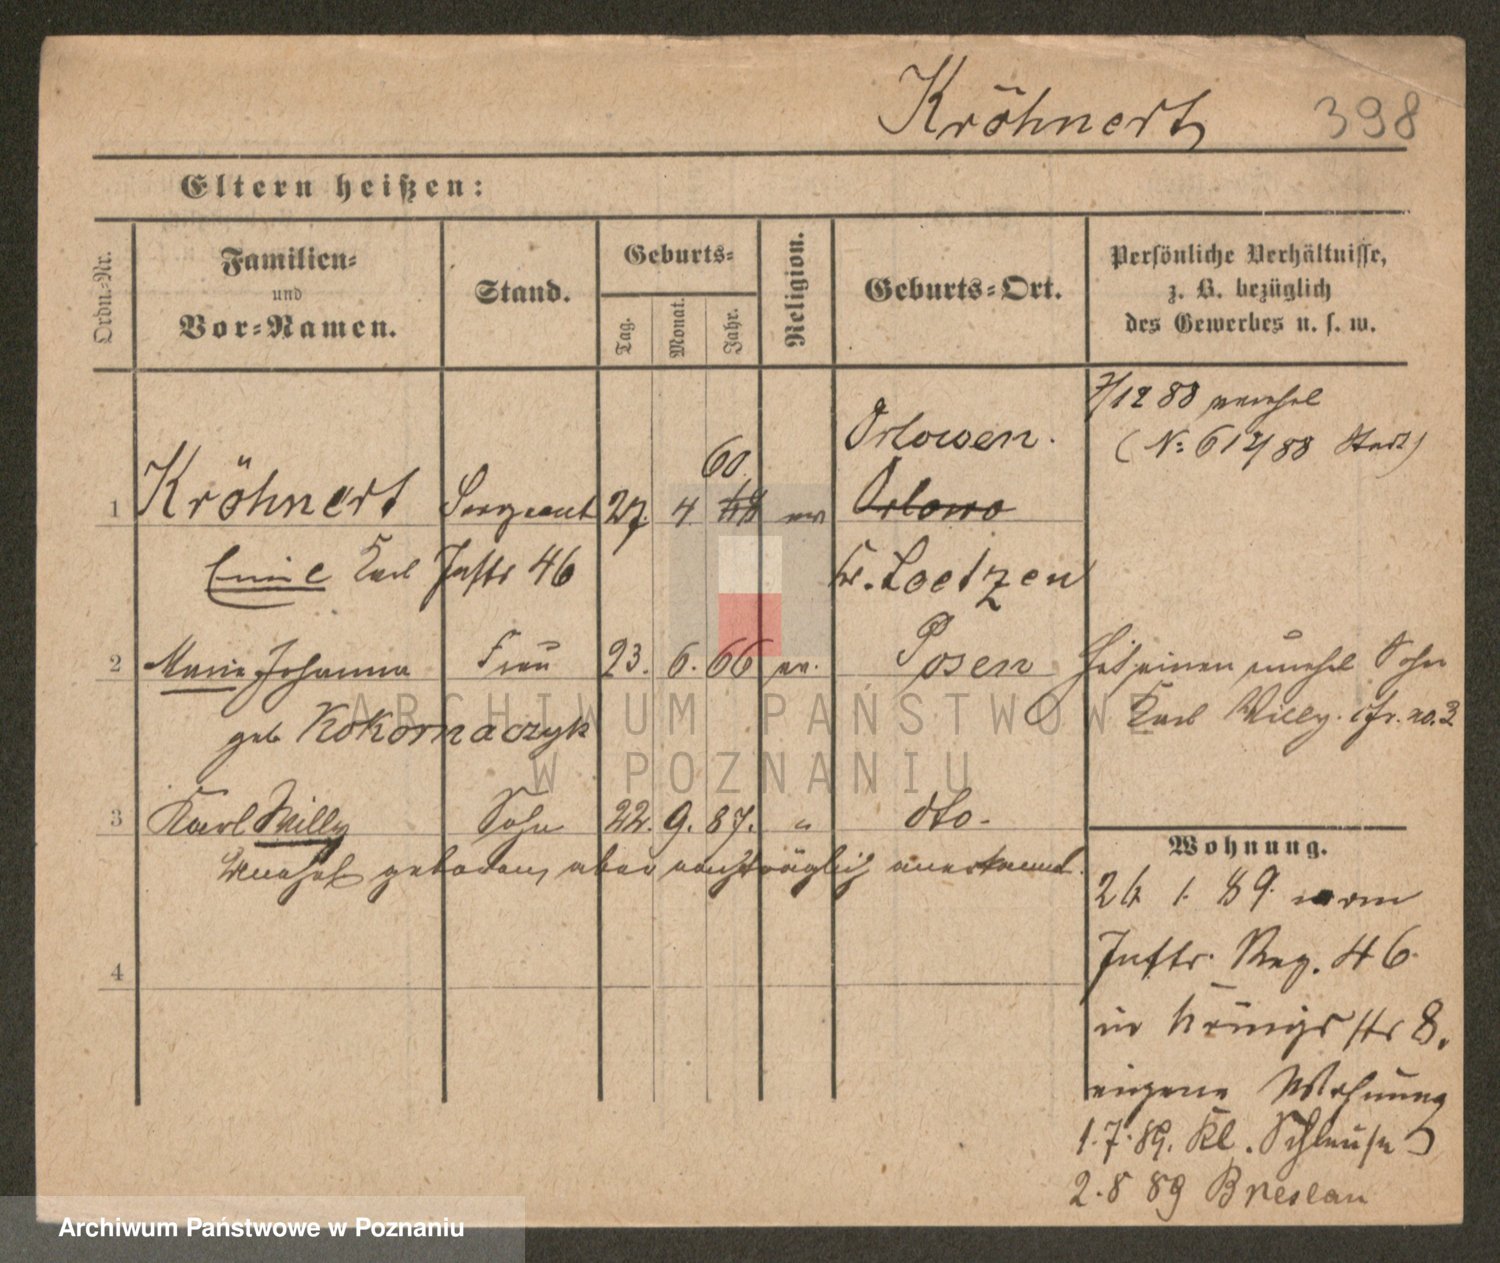 Kröhnert 398
Eltern heißen:
Ordn.-Nr.
Familien-
und
Vor-Namen.
Stand.
Geburts-
Tag.
Monat.
Jahr.
Religion.
Geburts-Ort.
Persönliche Verhältnisse,
z. B. bezüglich
des Gewerbes u. s. w.
7/12 88 verehel
(No 612/88 Stadt)
Orlowen.
60.
1 Kröhnert Sergeant 27. 4. ev Orlowo
Emil Karl Inftr 46 Kr. Loetzen
2 Marie Johanna Frau 23. 6. 66 ev. Posen Hat einen unehel Sohn
geb Kokornaczyk Karl Willy. cfr. no. 3
3 Karl Willy Sohn 22. 9. 87. " dto.
Unehel geboren, aber nachträglich anerkannt.
4
Wohnung.
26 1. 89. vom
Inftr. Reg. 46.
in Königsstr 8.
eigene Wohnung
1.7.89. Kl. Schleuse 5
2.8 89 Breslau
ARCHIWUM PAŃSTWOWE
W POZNANIU
Archiwum Państwowe w Poznaniu